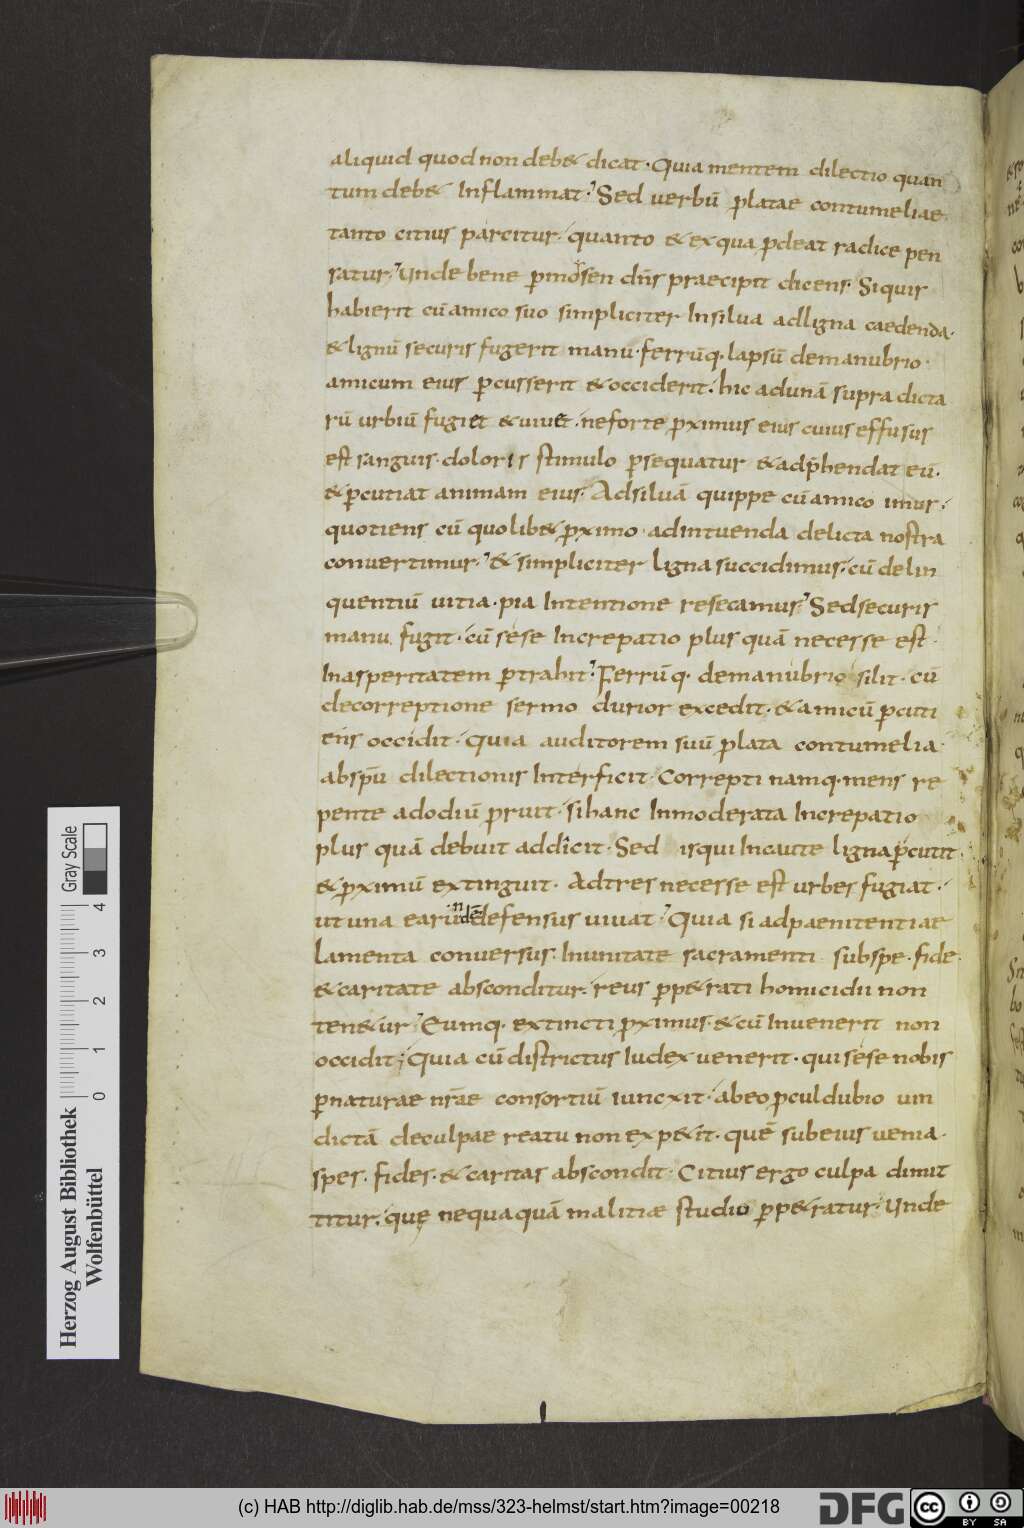 aliquid quod non deb& dicat. Quia mentem dilectio quan
tum deb& Inflammat. Sed verbū platae contumeliae.
tanto citius parcitur. quanto & ex qua pdeat radice pen
satur. Unde bene p mosen dn̄s praecipit dicens. Si quis
habierit cū amico suo simpliciter In silva ad ligna caedenda.
& lignū securis fugerit manu. ferrūq. lapsū de manubrio.
amicum eius pcusserit & occiderit. hic ad unā supra dicta
rū urbiū fugiet & vivet. ne forte pximus eius cuius effusus
est sanguis. doloris stimulo psequatur & adp̄hendat eū.
& pcutiat animam eius. Ad silvā quippe cū amico imus.
quotiens cū quolib& pximo. ad intuenda delicta nostra
convertimur. & simpliciter ligna succidimus. cū delin
quentiū vitia. pia Intentione resecamus. Sed securis
manu fugit. cū sese Increpatio plus quā necesse est.
In asperitatem ptrahit. Ferrūq. de manubrio silit. cū
de correptione sermo durior excedit. & amicū pcuti
ens occidit. Quia auditorem suū plata contumelia.
ab spū dilectionis Interficit. Correpti namq. mens re
pente ad odiū pruit. si hanc Inmoderata Increpatio
plus quā debuit addicit. Sed is qui Incaute ligna pcutit.
& pximū extinguit. Ad tres necesse est urbes fugiat.
ut una earūndē defensus vivat. Quia si ad paenitentiae
lamenta conversus. In unitate sacramenti sub spe. fide.
& caritate absconditur. reus pp&rati homicidii non
ten&ur. Eumq. extincti pximus. & cū Invenerit non
occidit; Quia cū districtus Iudex venerit. qui sese nobis
p naturae nr̄ae consortiū iuncxit. ab eo pcul dubio vin
dictā de culpae reatu non exp&it. quē sub eius venia.
spes. fides. & caritas abscondit. Citius ergo culpa dimit
titur. que nequaquā malitiae studio pp&ratur. Unde
Herzog August Bibliothek
Wolfenbüttel
0 1 2 3 4
Gray Scale
(c) HAB http://diglib.hab.de/mss/323-helmst/start.htm?image=00218
DFG
cc BY SA